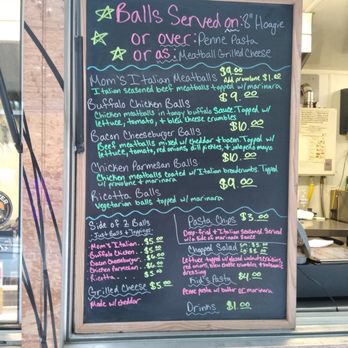 Balls Served on: 8" Hoagie
or over: Penne Pasta
or as: Meatball Grilled Cheese
Mom's Italian Meatballs $9.00
Add provolone $1.00
Italian seasoned beef meatballs topped w/ marinara
Buffalo Chicken Balls $9.00
Chicken meatballs in tangy buffalo sauce. Topped w/
lettuce, tomato, + bleu cheese crumbles
Bacon Cheeseburger Balls $10.00
Beef meatballs mixed w/ cheddar + bacon. Topped w/
lettuce, tomato, red onions, dill pickles, + jalapeño mayo
Chicken Parmesan Balls $10.00
Chicken meatballs coated w/ Italian breadcrumbs. Topped
w/ provolone + marinara
Ricotta Balls $9.00
Vegetarian balls topped w/ marinara
Side of 2 Balls
Just Balls + Toppings:
Mom's Italian. $5.00
Buffalo Chicken. $5.00
Bacon Cheeseburger.
Chicken Parmesan.
Ricotta $5.00
Grilled Cheese $5.00
Made w/ cheddar
Pasta Chips $3.00
Deep-fried + Italian seasoned. Served
w/ a side of marinara sauce
Chopped Salad
Lettuce topped w/
red onions, bleu cheese crumbles + balsamic
dressing
Kid's Pasta $4.00
Penne pasta w/ butter or marinara
Drinks $1.00